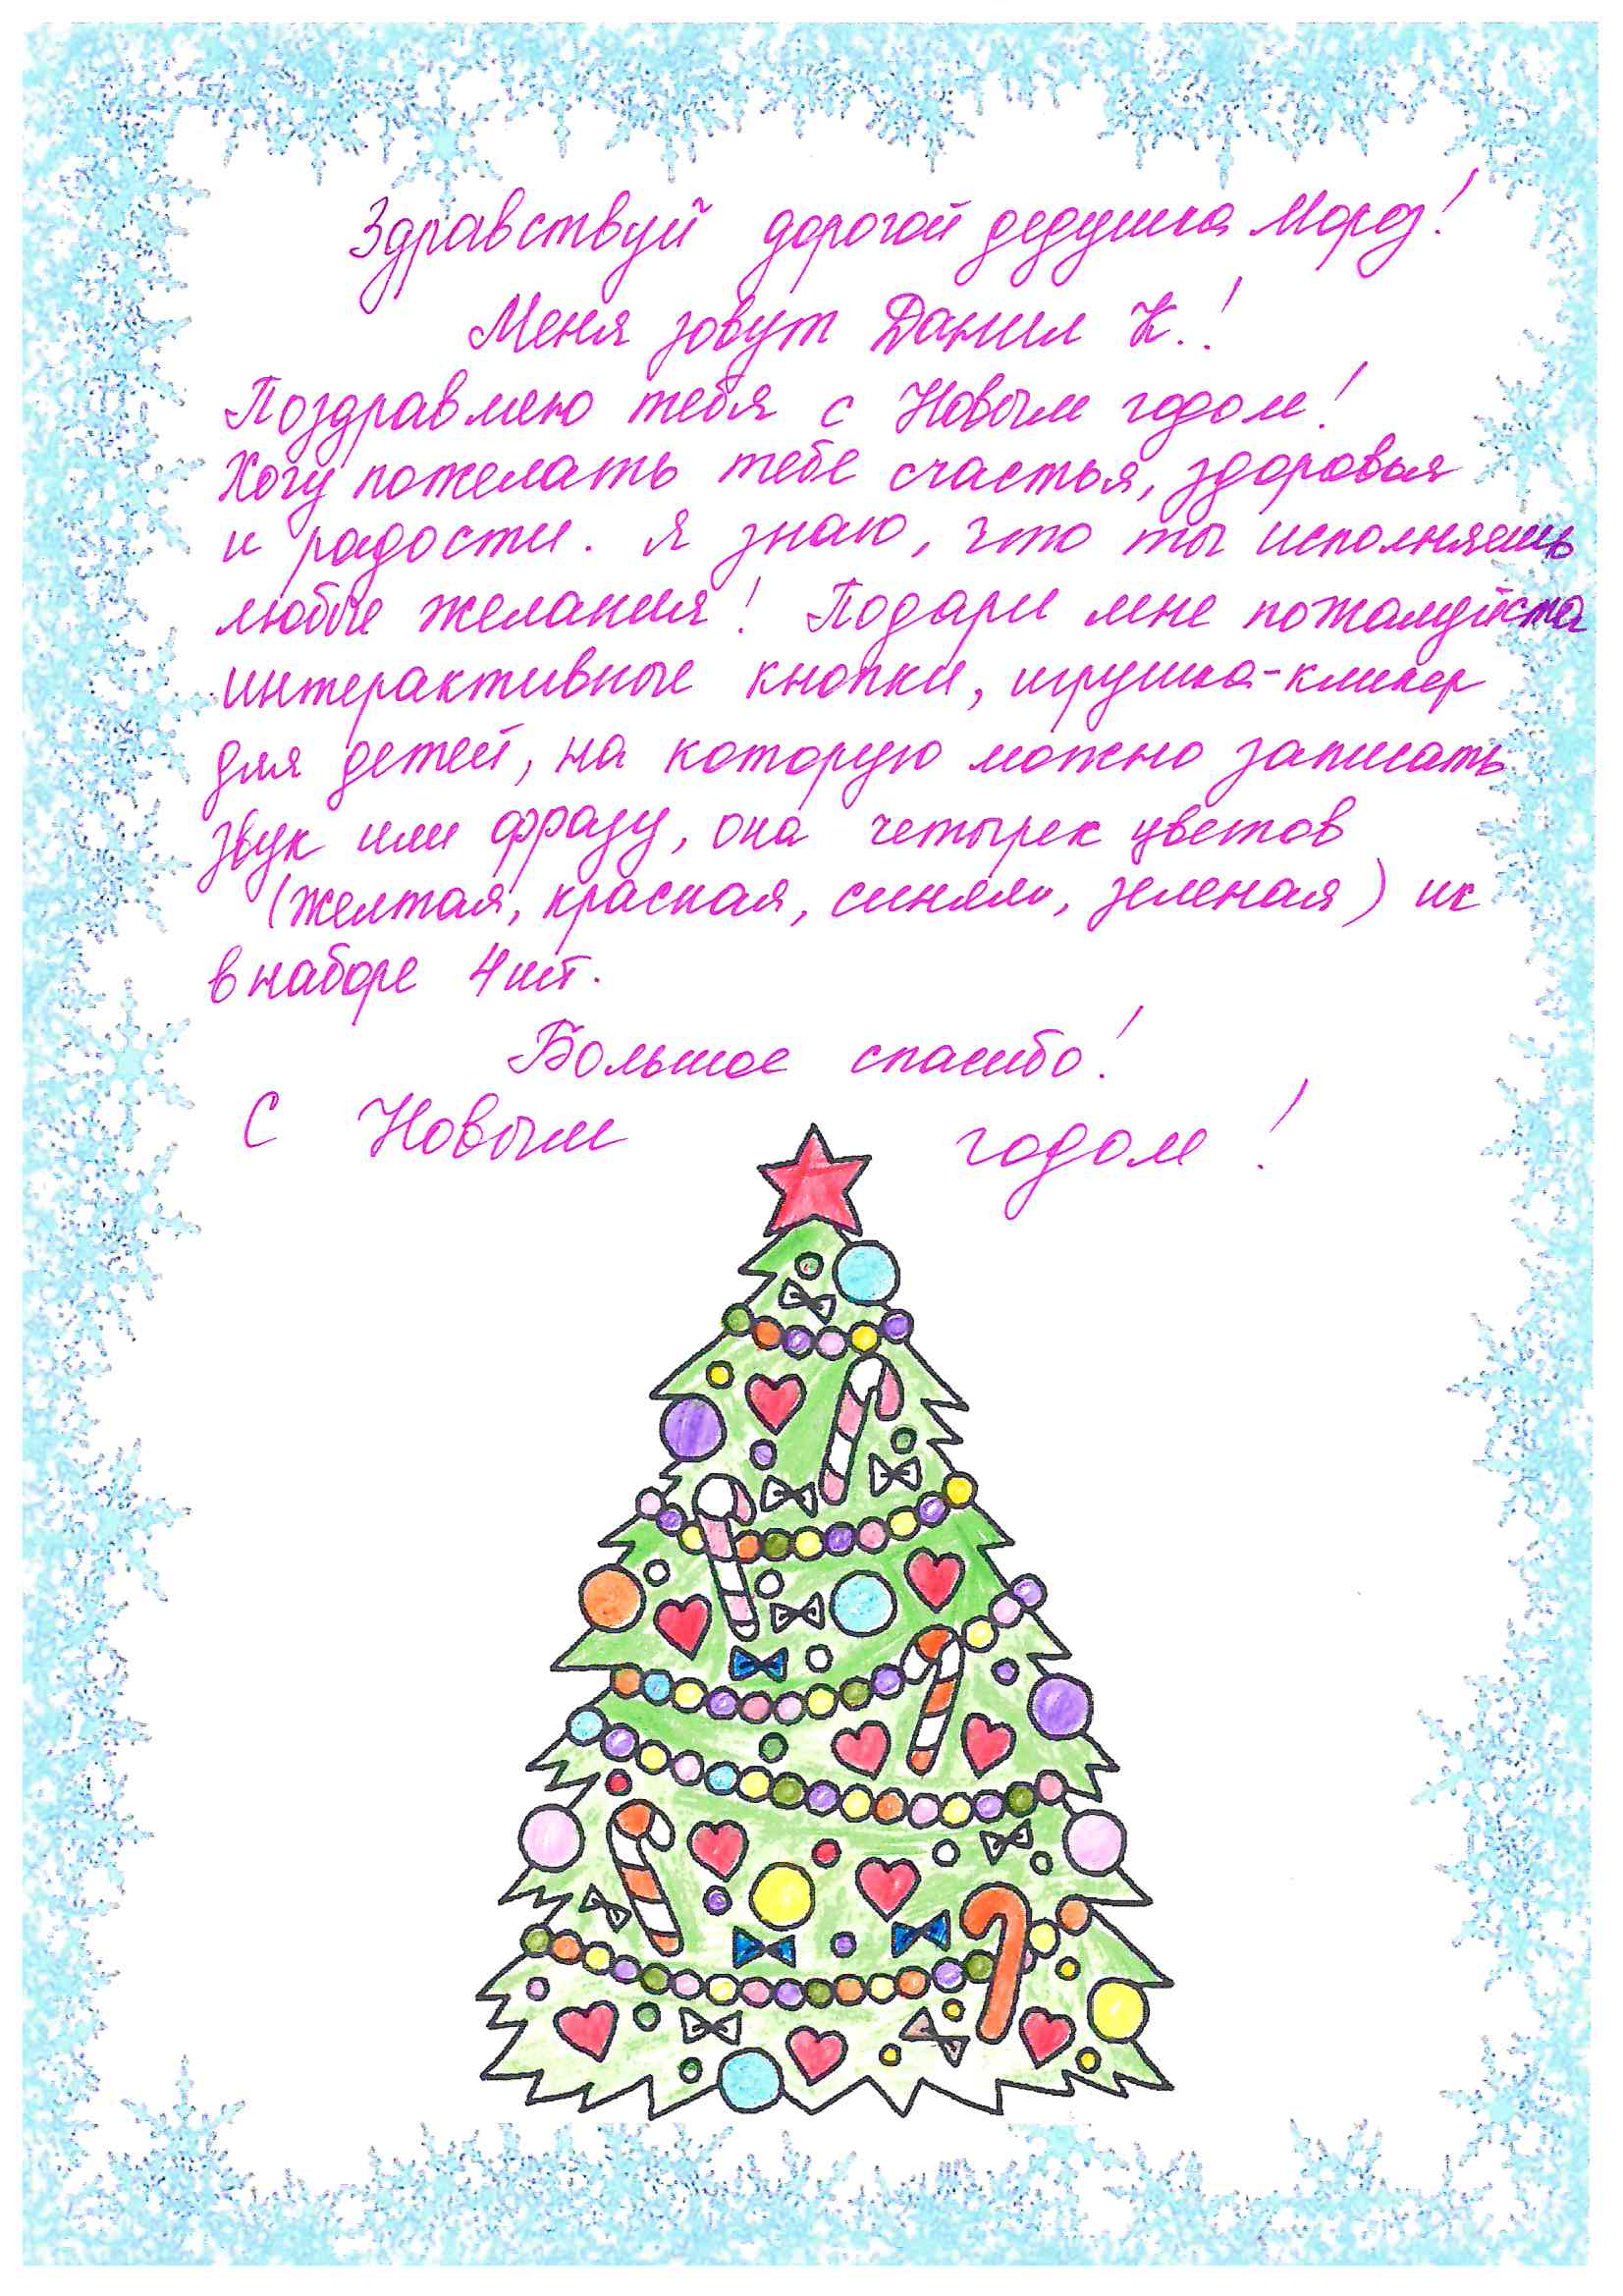 Здравствуй дорогой дедушка Мороз!
Меня зовут Данил К.!
Поздравляю тебя с Новым годом!
Хочу пожелать тебе счастья, здоровья
и радости. Я знаю, что ты исполняешь
любые желания! Подари мне пожалуйста
интерактивные кнопки, игрушка-кликер
для детей, на которую можно записать
звук или фразу, она четырех цветов
(желтая, красная, синяя, зеленая) их
в наборе 4 шт.
Большое спасибо!
С Новым годом!